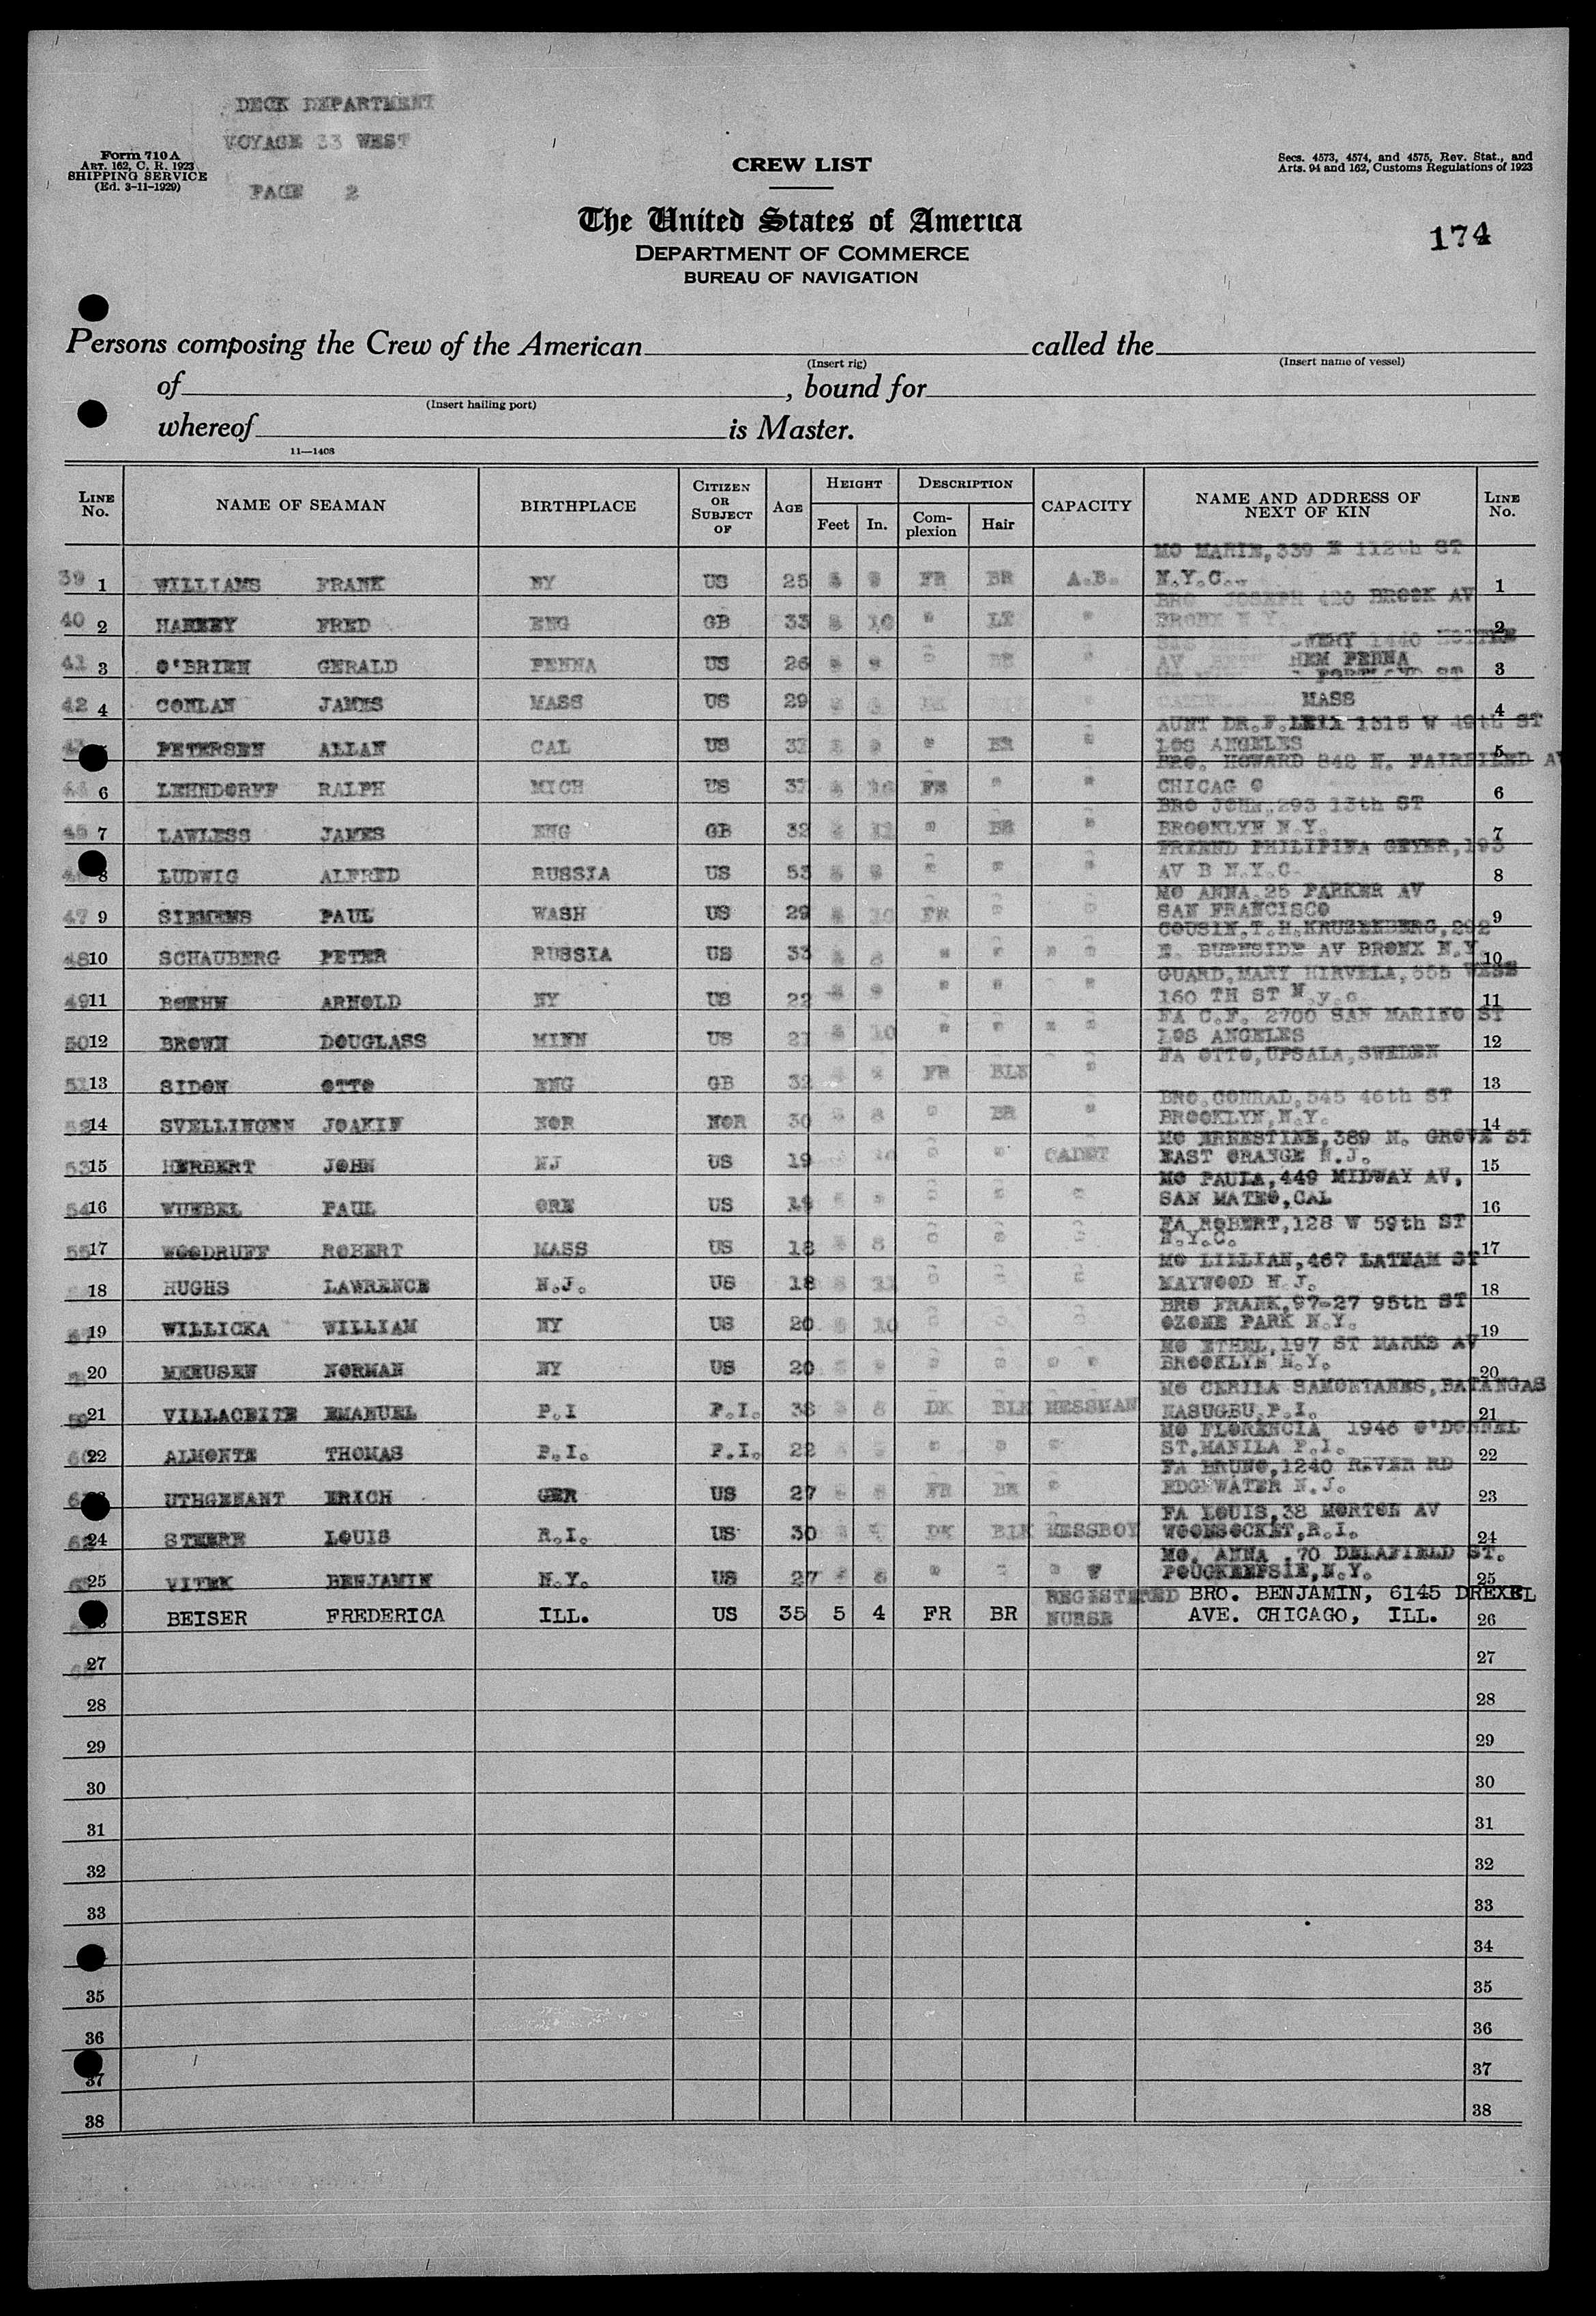 DECK DEPARTMENT
VOYAGE 33 WEST
PAGE 2
Form 710 A
ART. 162, C. R. 1923
SHIPPING SERVICE
(Ed. 3-11-1929)
Secs. 4573, 4574, and 4575, Rev. Stat., and
Arts. 94 and 162, Customs Regulations of 1923
CREW LIST
The United States of America
DEPARTMENT OF COMMERCE
BUREAU OF NAVIGATION
174
Persons composing the Crew of the American called the
(Insert rig) (Insert name of vessel)
of , bound for
(Insert hailing port)
whereof is Master.
11—1408
LINE No. NAME OF SEAMAN BIRTHPLACE CITIZEN OR SUBJECT OF AGE HEIGHT Feet In. DESCRIPTION Complexion Hair CAPACITY NAME AND ADDRESS OF NEXT OF KIN LINE No.
MO MARIE, 339 E 112th ST
39 1 WILLIAMS FRANK NY US 25 FR BR A.B. N.Y.C. 1
BRO JOSEPH 420 BROOK AV
40 2 FRED ENG GB 33 10 " LT " BRONX N.Y. 2
1440
41 3 O'BRIEN GERALD PENNA US 26 " " AV HEM PENNA 3
PORTLAND ST
42 4 CONLAN JAMES MASS US 29 MASS 4
AUNT DR. F. 1515 W 49th ST
PETERSEN ALLAN CAL US " BR " LOS ANGELES 5
BRO. HOWARD 842 N. FAIRFIELND AV
6 LEHNDORFF RALPH MICH US 10 FR " " CHICAG O 6
BRO JOHN, 293 13th ST
45 7 LAWLESS JAMES ENG GB 32 11 " BR " BROOKLYN N.Y. 7
FREEND PHILIPINA GEYER, 193
8 LUDWIG ALFRED RUSSIA US 53 " " " AV B N.Y.C. 8
MO ANNA, 25 PARKER AV
47 9 SIEMENS PAUL WASH US 29 10 FR " " SAN FRANCISCO 9
COUSIN, T.H. KRUZENBERG, 292
48 10 SCHAUBERG PETER RUSSIA US 33 8 " " " " E. BURNSIDE AV BRONX N.Y. 10
GUARD, MARY HIRVELA, 555 WEST
49 11 BOEHM ARNOLD NY US 22 " " " 160 TH ST N.y.c. 11
FA C.F. 2700 SAN MARINO ST
50 12 BROWN DOUGLASS MINN US 21 10 " " " " LOS ANGELES 12
FA OTTO, UPSALA, SWEDEN
51 13 SIDON OTTO ENG GB 32 FR " 13
BRO. CONRAD, 545 46th ST
52 14 SVELLINGEN JOAKIN NOR NOR 30 8 " BR " BROOKLYN, N.Y. 14
MO ERNESTINE, 389 N. GROVE ST
53 15 HERBERT JOHN NJ US 19 " " CADET EAST ORANGE N.J. 15
MO PAULA, 449 MIDWAY AV,
54 16 WUEBEL PAUL ORE US " " " SAN MATEO, CAL 16
FA ROBERT, 128 W 59th ST
55 17 WOODRUFF ROBERT MASS US 18 8 " " " N.Y.C. 17
MO LILLIAN, 467 LATHAM ST
18 HUGHS LAWRENCE N.J. US 18 11 " " " MAYWOOD N.J. 18
BRO FRANK, 97-27 95th ST
19 WILLICKA WILLIAM NY US 20 10 " " " OZONE PARK N.Y. 19
MO ETHEL, 197 ST MARKS AV
20 MEEUSEN NORMAN NY US 20 " " " " BROOKLYN N.Y. 20
MO CERILA SAMONTANES, BATANGAS
21 VILLACEITE EMANUEL P.I P.I. 38 8 DK BLK MESSMAN NASUGBU, P.I. 21
MO FLORENCIA 1946 O'DONNEL
22 ALMONTE THOMAS P.I. P.I. 22 " " " ST. MANILA P.I. 22
FA BRUNO, 1240 RIVER RD
UTHGENANT ERICH GER US 27 FR BR " EDGEWATER N.J. 23
FA LOUIS, 38 MORTON AV
24 STEERE LOUIS R.I. US 30 DK BLK MESSBOY WOONSOCKET, R.I. 24
MO. ANNA .70 DELAFIELD ST.
25 VITEK BENJAMIN N.Y. US 27 " " " " POUGKEEPSIE, N.Y. 25
REGISTERED BRO. BENJAMIN, 6145 DREXEL
BEISER FREDERICA ILL. US 35 5 4 FR BR NURSE AVE. CHICAGO, ILL. 26
27 27
28 28
29 29
30 30
31 31
32 32
33 33
34
35 35
36 36
37 37
38 38